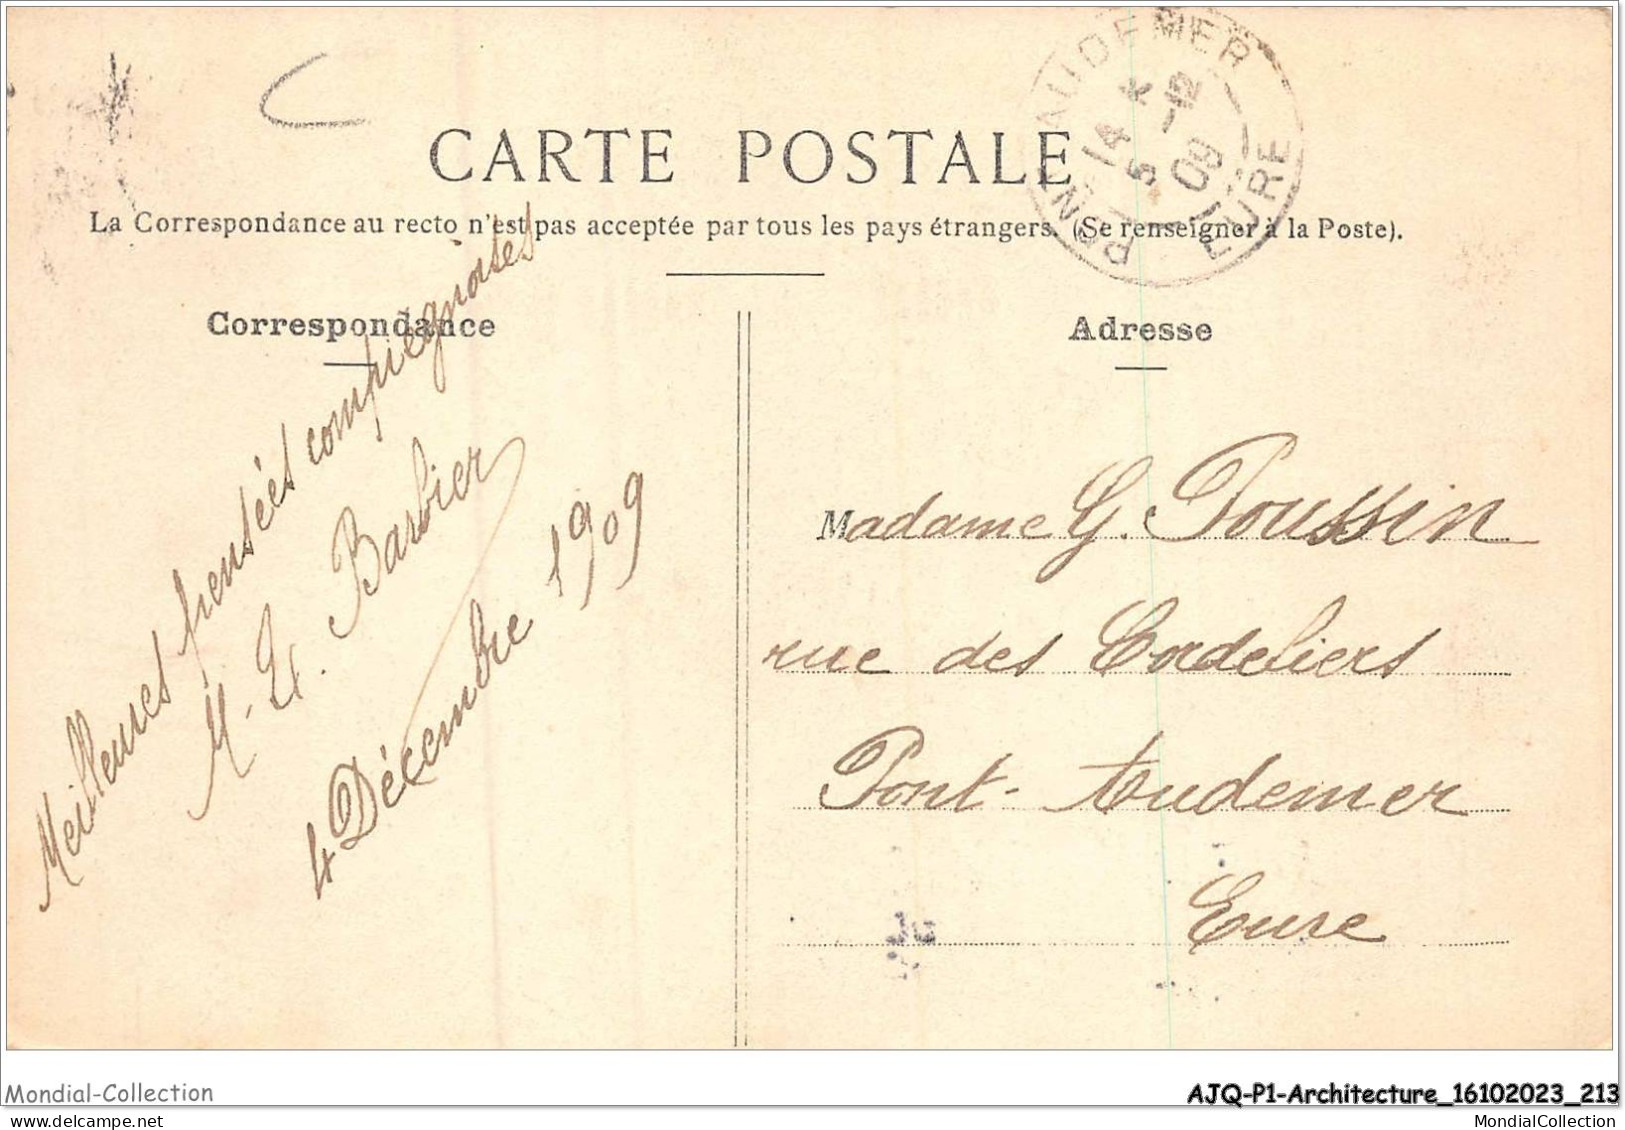 PONT-AUDEMER
EURE
14 *
5 -12
09
CARTE POSTALE
La Correspondance au recto n'est pas acceptée par tous les pays étrangers. (Se renseigner à la Poste).
Correspondance
Meilleures pensées compiégnoises
M. Barbier
4 Décembre 1909
Adresse
Madame G. Poussin
rue des Cordeliers
Pont-Audemer
Eure
Mondial-Collection
AJQ-P1-Architecture_16102023_213
delcampe.net
MondialCollection